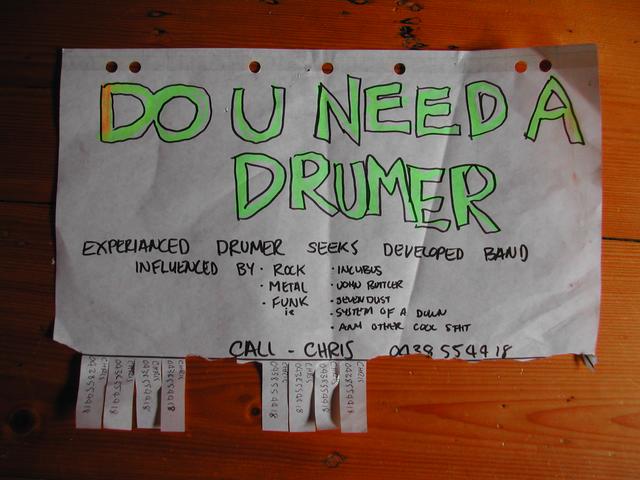 DO U NEED A
DRUMER
EXPERIANCED DRUMER SEEKS DEVELOPED BAND
INFLUENCED BY · ROCK · INCUBUS
· METAL · JOHN BUTTLER
· FUNK · SEVENDUST
ie · SYSTEM OF A DOWN
· ANY OTHER COOL SHIT
CALL - CHRIS 0438554418
CHRIS
0438554418
CHRIS
0438554418
CHRIS
0438554418
CHRIS
0438554418
CHRIS
0438554418
CHRIS
0438554418
CHRIS
0438554418
CHRIS
0438554418